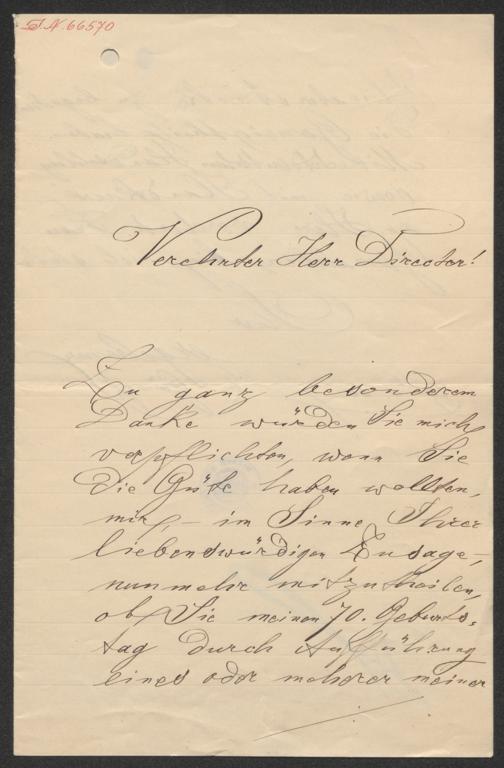 I.N. 66570
Verehrter Herr Director!
Zu ganz besonderem
Danke würden Sie mich
verpflichten, wenn Sie
die Güte haben wollten,
mir, – im Sinne Ihrer
liebenswürdigen Zusage –,
nunmehr mitzutheilen,
ob Sie meinen 70. Geburts-
tag durch Aufführung
eines oder mehrer meiner